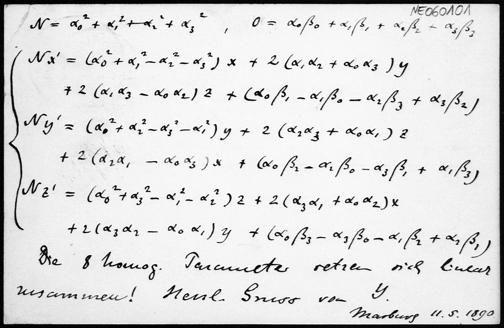 NE060101
N = α₀² + α₁² + α₂² + α₃² , 0 = α₀β₀ + α₁β₁ + α₂β₂ + α₃β₃
Nx' = (α₀² + α₁² − α₂² − α₃²) x + 2 (α₁α₂ + α₀α₃) y
+ 2 (α₁α₃ − α₀α₂) z + (α₀β₁ − α₁β₀ − α₂β₃ + α₃β₂)
Ny' = (α₀² + α₂² − α₃² − α₁²) y + 2 (α₂α₃ + α₀α₁) z
+ 2 (α₂α₁ − α₀α₃) x + (α₀β₂ − α₂β₀ − α₃β₁ + α₁β₃)
Nz' = (α₀² + α₃² − α₁² − α₂²) z + 2 (α₃α₁ + α₀α₂) x
+ 2 (α₃α₂ − α₀α₁) y + (α₀β₃ − α₃β₀ − α₁β₂ + α₂β₁)
Die 8 homog. Parameter setzen sich linear
zusammen! Herzl. Gruss von
Marburg 11.5.1890